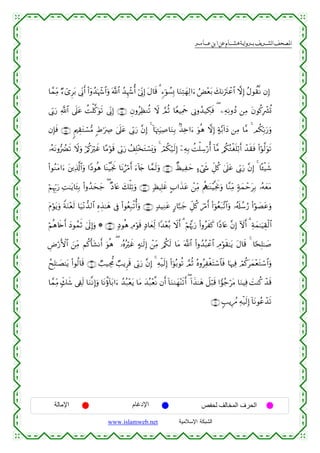 المصحف الشريف برواية هشام عن ابن عامر
إِن نَّقُولُ إِلَّا ٱعْتَرَىٰكَ بَعْضُ ءَالِهَتِنَا بِسُوٓءٍ ۗ قَالَ إِنِّىٓ أُشْهِدُ ٱللَّهَ وَٱشْهَدُوٓا۟ أَنِّى بَرِىٓءٌ مِّمَّا
تُشْرِكُونَ مِن دُونِهِۦ ۖ فَكِيدُونِى جَمِيعًا ثُمَّ لَا تُنظِرُونِ إِنِّى تَوَكَّلْتُ عَلَى ٱللَّهِ رَبِّى
وَرَبِّكُم ۚ مَّا مِن دَآبَّةٍ إِلَّا هُوَ ءَاخِذٌۢ بِنَاصِيَتِهَآ ۚ إِنَّ رَبِّى عَلَىٰ صِرَٰطٍ مُّسْتَقِيمٍ فَإِن
تَوَلَّوْا۟ فَقَدْ أَبْلَغْتُكُم مَّآ أُرْسِلْتُ بِهِۦٓ إِلَيْكُمْ ۚ وَيَسْتَخْلِفُ رَبِّى قَوْمًا غَيْرَكُمْ وَلَا تَضُرُّونَهُۥ
شَيْـًٔا ۚ إِنَّ رَبِّى عَلَىٰ كُلِّ شَىْءٍ حَفِيظٌ وَلَمَّا جَآءَ أَمْرُنَا نَجَّيْنَا هُودًا وَٱلَّذِينَ ءَامَنُوا۟
مَعَهُۥ بِرَحْمَةٍ مِّنَّا وَنَجَّيْنَٰهُم مِّنْ عَذَابٍ غَلِيظٍ وَتِلْكَ عَادٌ ۖ جَحَدُوا۟ بِـَٔايَٰتِ رَبِّهِمْ
وَعَصَوْا۟ رُسُلَهُۥ وَٱتَّبَعُوٓا۟ أَمْرَ كُلِّ جَبَّارٍ عَنِيدٍ وَأُتْبِعُوا۟ فِى هَٰذِهِ ٱلدُّنْيَا لَعْنَةً وَيَوْمَ
ٱلْقِيَٰمَةِ ۗ أَلَآ إِنَّ عَادًا كَفَرُوا۟ رَبَّهُمْ ۗ أَلَا بُعْدًا لِّعَادٍ قَوْمِ هُودٍ وَإِلَىٰ ثَمُودَ أَخَاهُمْ
صَٰلِحًا ۚ قَالَ يَٰقَوْمِ ٱعْبُدُوا۟ ٱللَّهَ مَا لَكُم مِّنْ إِلَٰهٍ غَيْرُهُۥ ۖ هُوَ أَنشَأَكُم مِّنَ ٱلْأَرْضِ
وَٱسْتَعْمَرَكُمْ فِيهَا فَٱسْتَغْفِرُوهُ ثُمَّ تُوبُوٓا۟ إِلَيْهِ ۚ إِنَّ رَبِّى قَرِيبٌ مُّجِيبٌ قَالُوا۟ يَٰصَٰلِحُ
قَدْ كُنتَ فِينَا مَرْجُوًّا قَبْلَ هَٰذَآ ۖ أَتَنْهَىٰنَآ أَن نَّعْبُدَ مَا يَعْبُدُ ءَابَآؤُنَا وَإِنَّنَا لَفِى شَكٍّ مِّمَّا
تَدْعُونَآ إِلَيْهِ مُرِيبٍ
الحرف المخالف لحفص الإدغام الإمالة
الشبكة الإسلامية www.islamweb.net